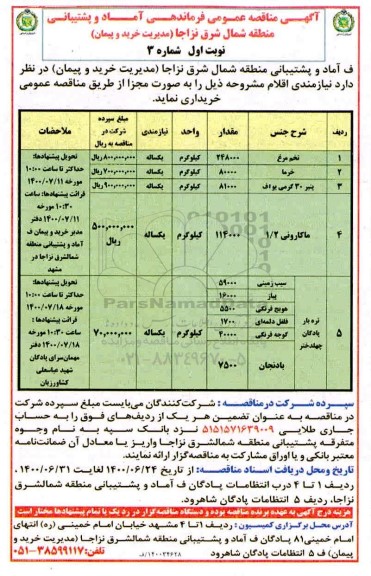 آگهی مناقصه عمومی فرماندهی آماد و پشتیبانی
منطقه شمال شرق نزاجا (مدیریت خرید و پیمان)
نوبت اول شماره ۳
ف آماد و پشتیبانی منطقه شمال شرق نزاجا (مدیریت خرید و پیمان) در نظر
دارد نیازمندی اقلام مشروحه ذیل را به صورت مجزا از طریق مناقصه عمومی
خریداری نماید.
ردیف شرح جنس مقدار واحد نیازمندی مبلغ سپرده شرکت در مناقصه به ریال ملاحضات
۱ تخم مرغ ۲۴۸۰۰۰ کیلوگرم یکساله ۸۰۰,۰۰۰,۰۰۰ ریال
۲ خرما ۸۰۰۰۰ کیلوگرم یکساله ۷۰۰,۰۰۰,۰۰۰ ریال
۳ پنیر ۳۰ گرمی یو اف ۸۱۰۰۰ کیلوگرم یکساله ۹۰۰,۰۰۰,۰۰۰ ریال
۴ ماکارونی ۱/۲ ۱۱۴۰۰۰ کیلوگرم یکساله ۵۰۰,۰۰۰,۰۰۰ ریال
تحویل پیشنهادها:
حداکثر تا ساعت ۱۰:۰۰
مورخه ۱۴۰۰/۰۷/۱۱
قرائت پیشنهادها: ساعت
۱۰:۳۰ مورخه
۱۴۰۰/۰۷/۱۱ دفتر
مدیر خرید و پیمان ف
آماد و پشتیبانی منطقه
شمالشرق نزاجا در
مشهد
۵ تره بار پادگان چهلدختر کیلوگرم یکساله ۷۰,۰۰۰,۰۰۰
سیب زمینی ۵۹۰۰۰
پیاز ۱۶۰۰۰
هویج فرنگی ۵۵۰۰
فلفل دلمه‌ای ۱۷۰۰
گوجه فرنگی ۴۰۰۰۰
بادنجان ۷۵۰۰
تحویل پیشنهادها:
حداکثر تا ساعت ۱۰:۰۰
مورخه ۱۴۰۰/۰۷/۱۸
قرائت پیشنهادها:
ساعت ۱۰:۳۰ مورخه
۱۴۰۰/۰۷/۱۸ دفتر
مهمان‌سرای پادگان
شهید عباسعلی
کشاورزیان
ParsNamadData
۰۲۱-۸۸۳۴۹۶۷۰-۵
سپرده شرکت در مناقصه: شرکت‌کنندگان می‌بایست مبلغ سپرده شرکت
در مناقصه به عنوان تضمین هر یک از ردیف‌های فوق را به حساب
جاری طلایی ۵۱۵۱۵۷۱۶۳۹۰۰۹ نزد بانک سپه به نام وجوه
متفرقه پشتیبانی منطقه شمالشرق نزاجا واریز یا معادل آن ضمانت‌نامه
معتبر بانکی و یا اوراق مشارکت به مناقصه‌گزار ارائه نمایند.
تاریخ و محل دریافت اسناد مناقصه: از تاریخ ۱۴۰۰/۰۶/۲۴ لغایت ۱۴۰۰/۰۶/۳۱.
ردیف ۱ تا ۴ درب انتظامات پادگان ف آماد و پشتیبانی منطقه شمالشرق
نزاجا، ردیف ۵ انتظامات پادگان شاهرود.
هزینه درج آگهی به عهده برنده مناقصه بوده و دستگاه مناقصه‌گزار در رد یک یا تمام پیشنهادها مختار است
آدرس محل برگزاری کمیسیون: ردیف ۱ تا ۴ مشهد خیابان امام خمینی (ره) انتهای
امام خمینی ۸۱ پادگان ف آماد و پشتیبانی منطقه شمالشرق نزاجا (مدیریت خرید و
پیمان) ف ۵ انتظامات پادگان شاهرود
تلفن: ۰۵۱-۳۸۵۹۹۱۱۷